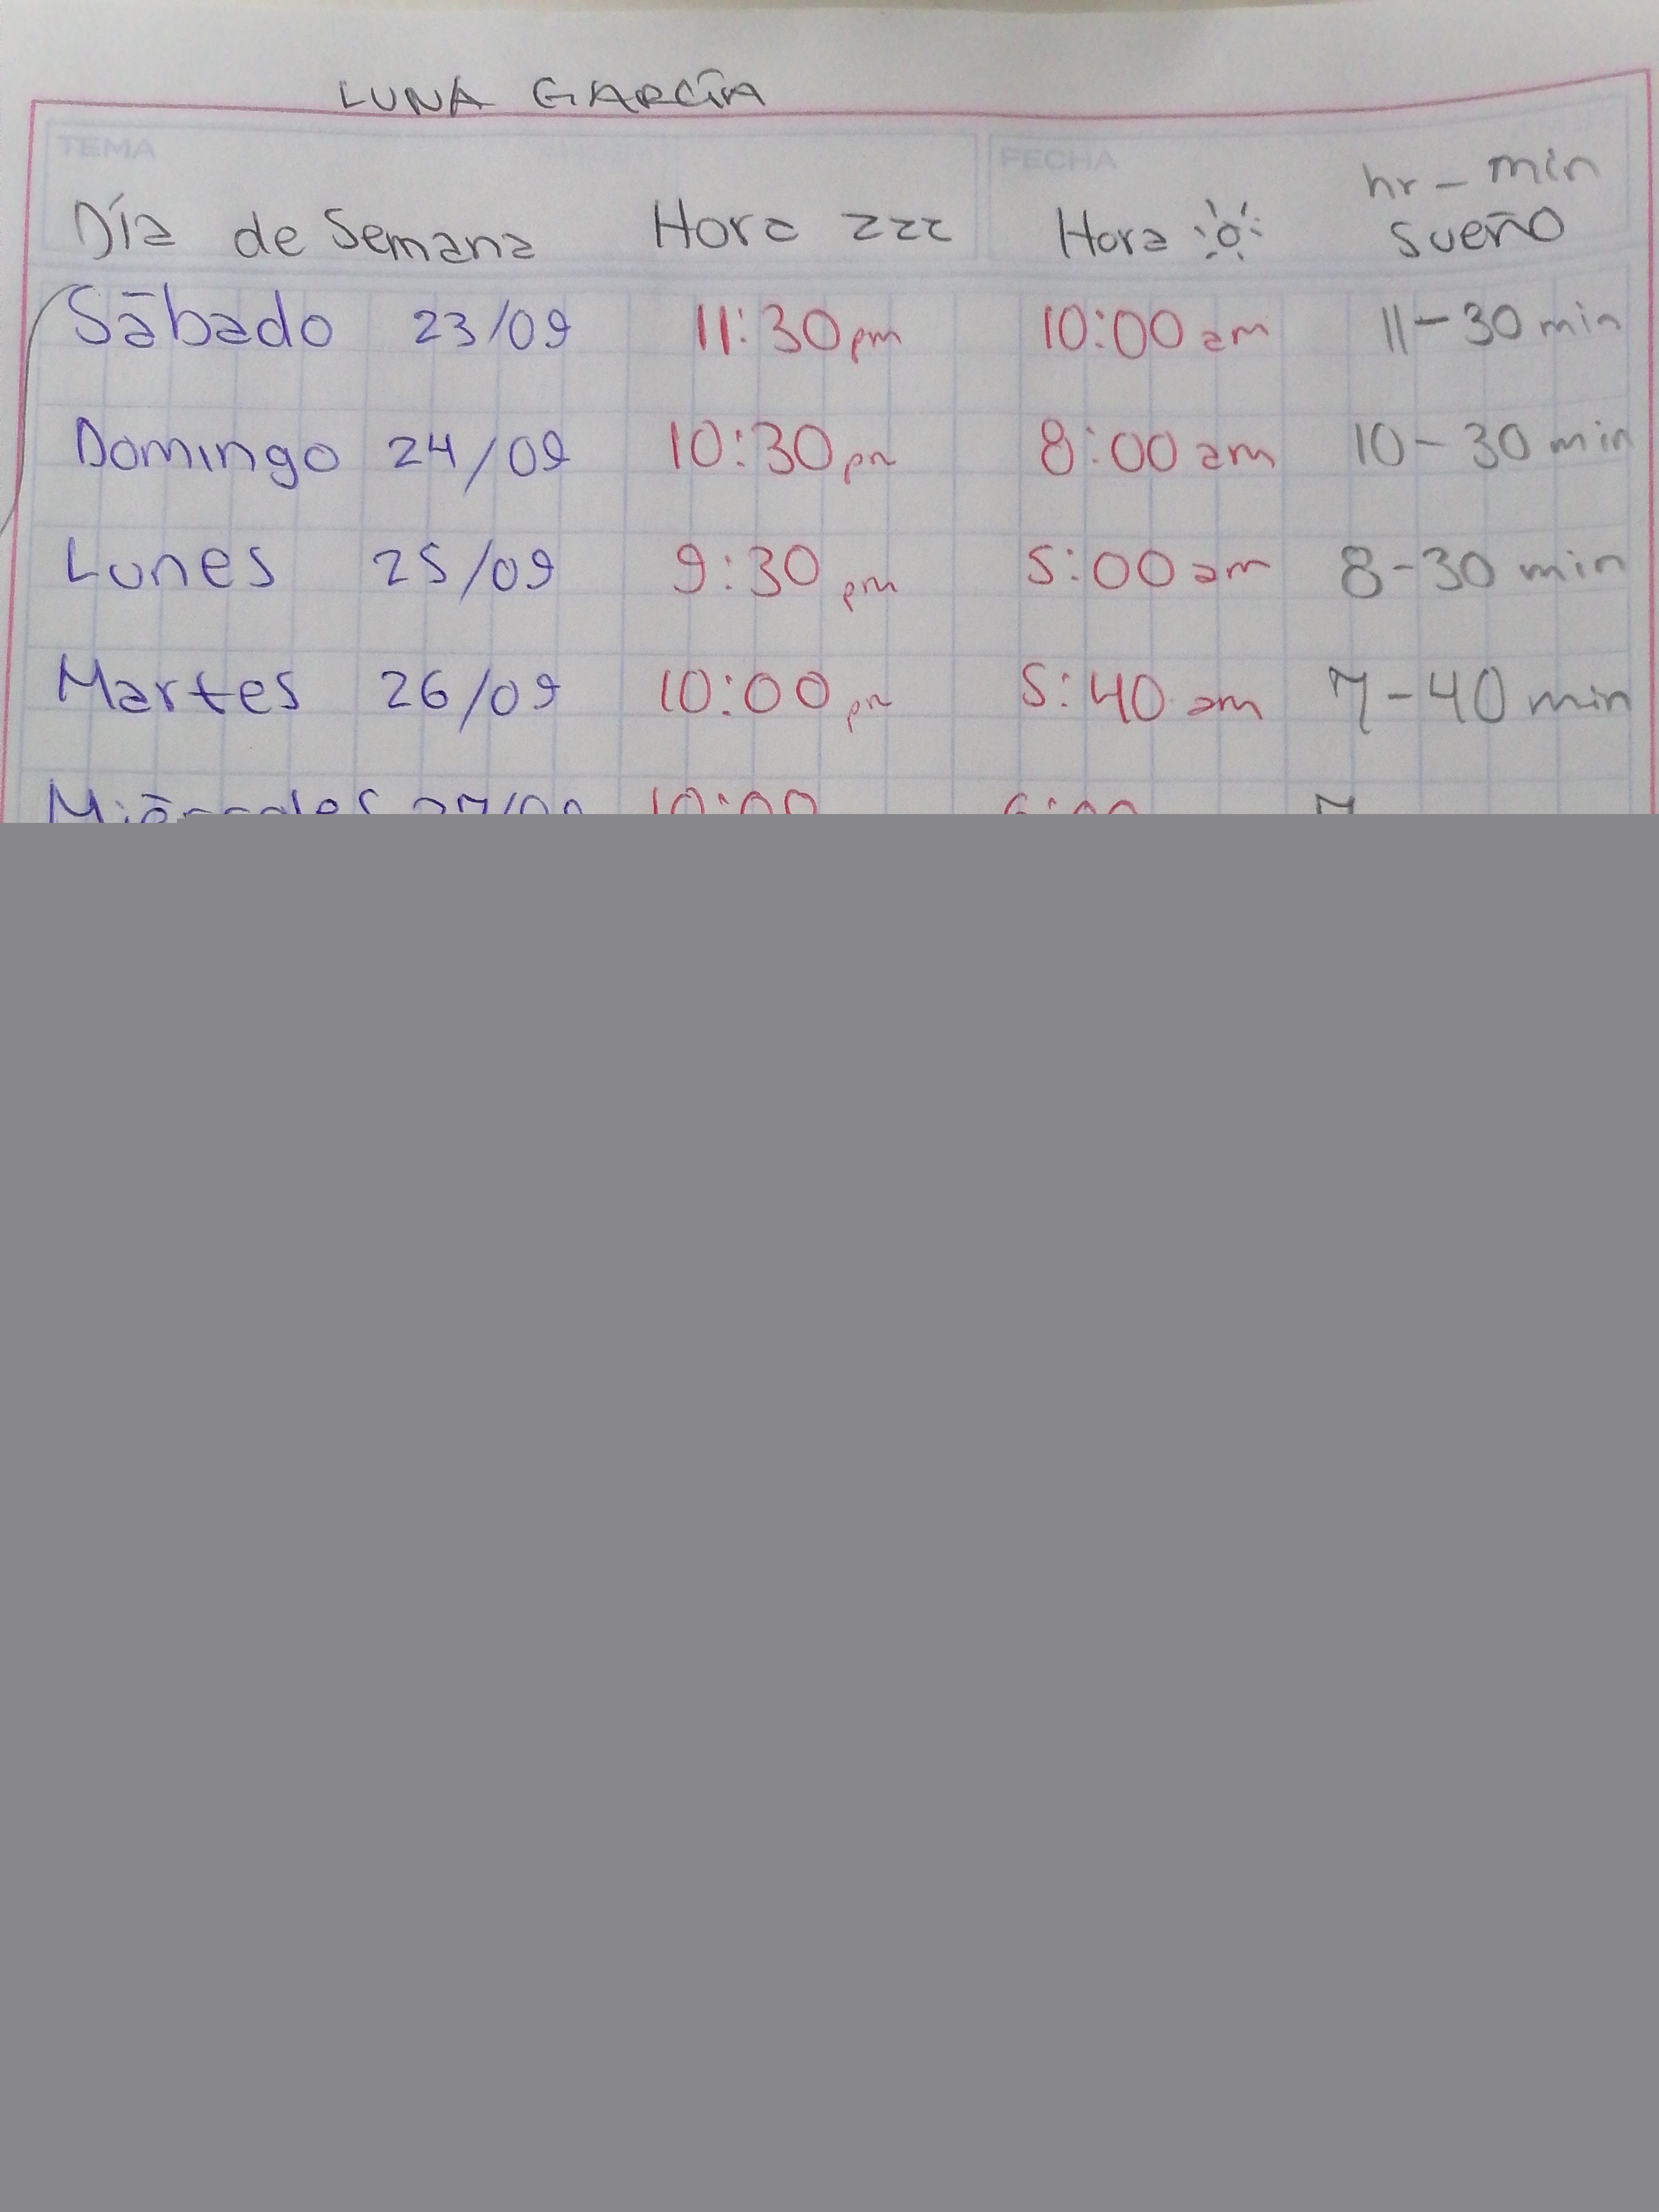 LUNA GARCÍA
TEMA FECHA
hr - min
Día de Semana Hora zzz Hora sueño
Sábado 23/09 11:30 pm 10:00 am 11-30 min
Domingo 24/09 10:30 pm 8:00 am 10-30 min
Lunes 25/09 9:30 pm 5:00 am 8-30 min
Martes 26/09 10:00 pm 5:40 am 7-40 min